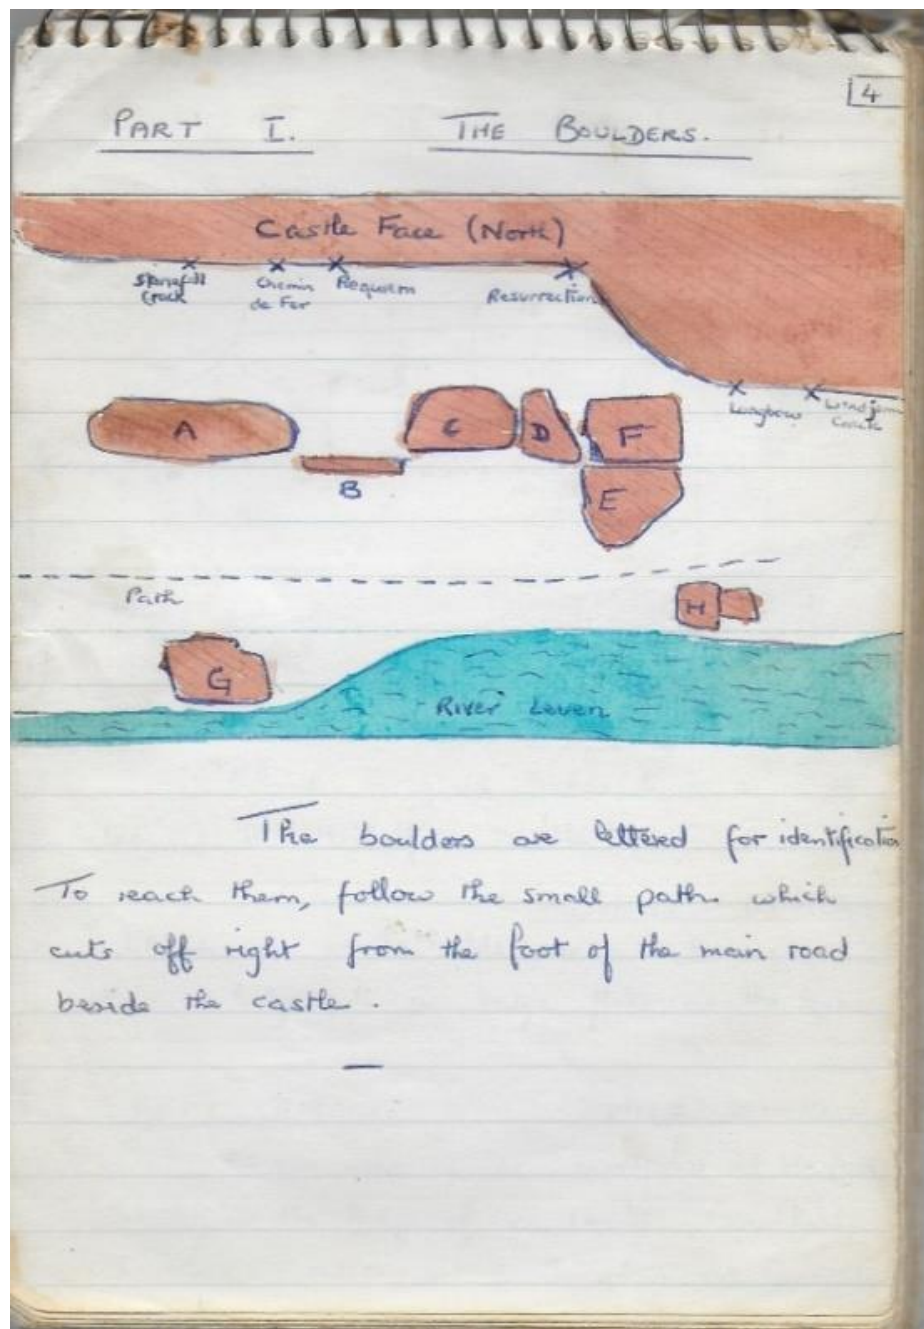 4
PART I. THE BOULDERS.
Castle Face (North)
Stonefall Chemin Requiem
Crack de Fer Resurrection
Longbow
Crack
A
C D F
B E
Path
H
G
River Leven
The boulders are lettered for identification
To reach them, follow the small path which
cuts off right from the foot of the main road
beside the castle.